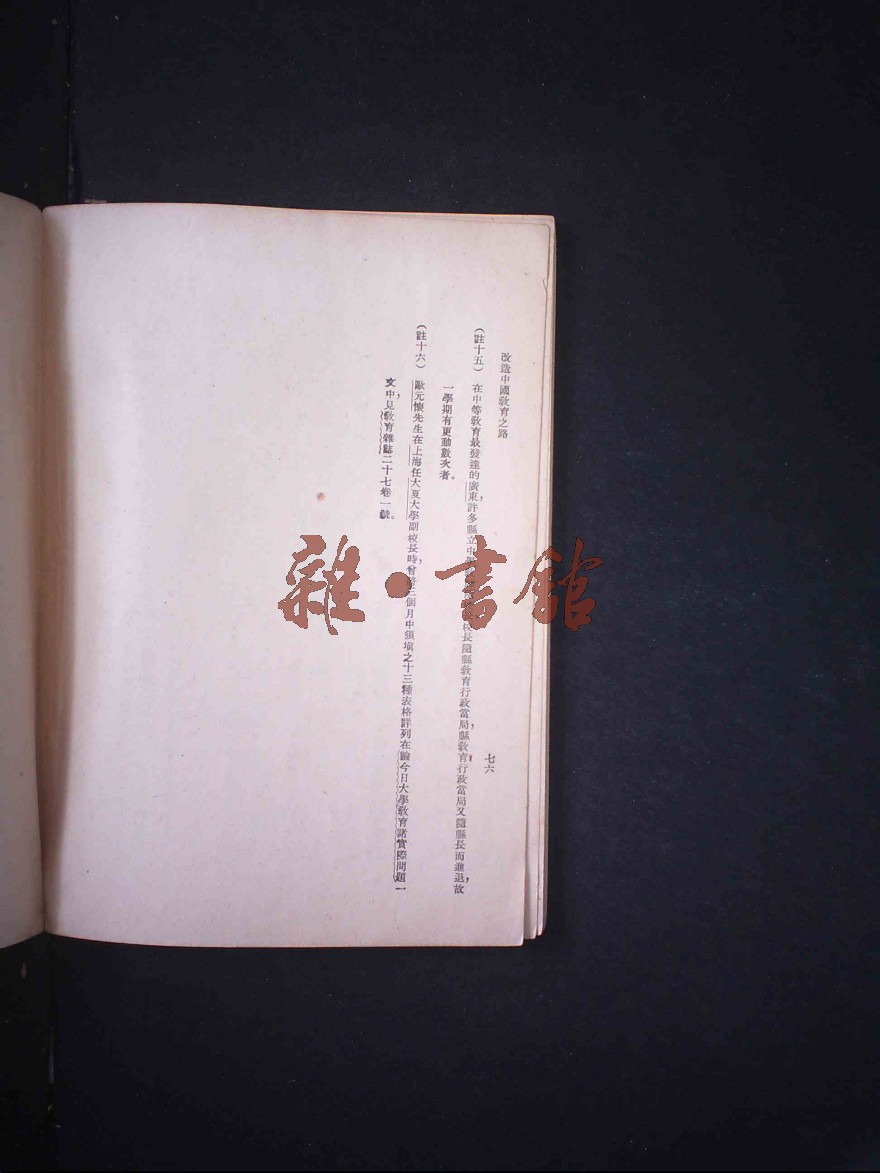 改造中國敎育之路
七六
(註十五) 在中等敎育最發達的廣東,許多縣立中 校長隨縣敎育行政當局,縣敎育行政當局又隨縣長而進退,故
一學期有更動數次者。
(註十六) 歐元懷先生在上海任大夏大學副校長時,曾 三個月中須塡之十三種表格詳列在論今日大學敎育諸實際問題一
文中,見敎育雜誌二十七卷一號。
雜·書館